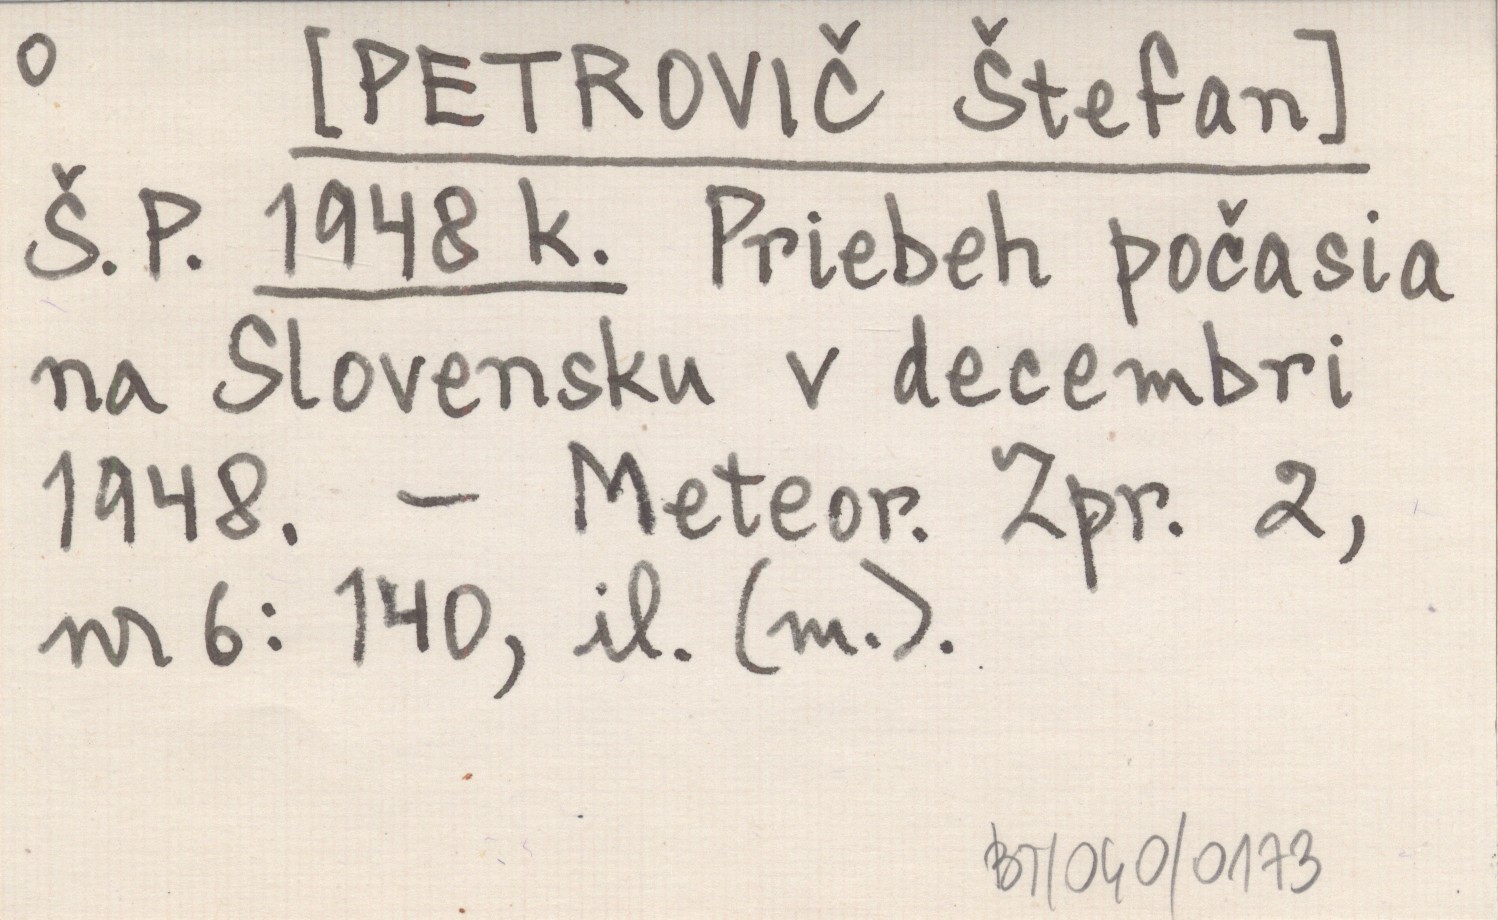 o [PETROVIČ Štefan]
Š.P. 1948 k. Priebeh počasia
na Slovensku v decembri
1948. – Meteor. Zpr. 2,
nr 6: 140, il. (m.).
BT/040/0173